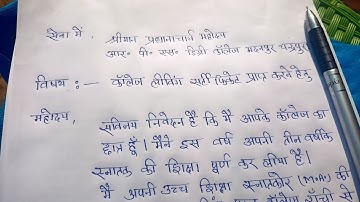 सेवा में,
श्रीमान प्रधानाचार्य महोदय
आर० पी० एस० डिग्री कॉलेज मदनपुर चन्द्रपुर
विषय :— कॉलेज लीविंग सर्टीफिकेट प्राप्त करने हेतु
महोदय,
सविनय निवेदन है कि मैं आपके कॉलेज का
छात्र हूँ। मैंने इस वर्ष अपनी तीन वर्षीय
स्नातक की शिक्षा पूर्ण कर लीया है।
मैं अपनी उच्च शिक्षा स्नातकोर (M.A) की
कॉलेज राँची से